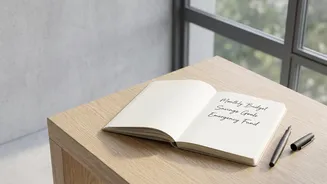 Monthly Budget
Savings Goals
Emergency Fund